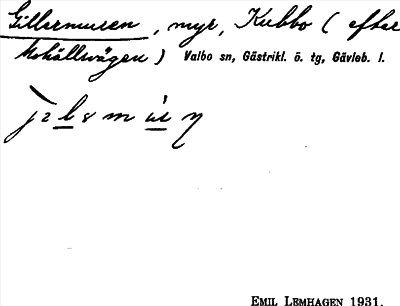 Gillermuren, myr, Kubbo (efter
Mohällsvägen) Valbo sn, Gästrikl. ö. tg, Gävleb. l.
EMIL LEMHAGEN 1931.